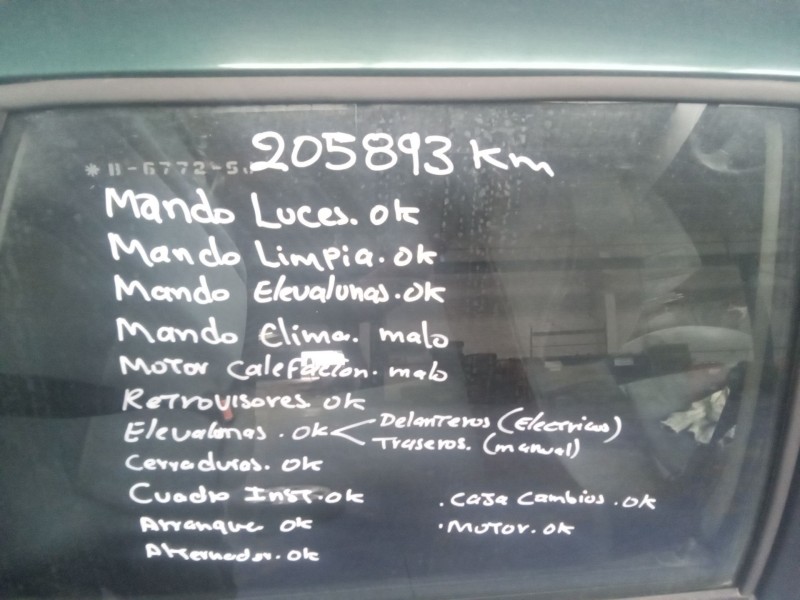 205893 km
*B-6772-S
Mando Luces. ok
Mando Limpia. ok
Mando Elevalunas. ok
Mando Clima. malo
Motor Calefacion. malo
Retrovisores ok
Elevalunas. ok < Delanteros (Electricos)
Traseros. (manual)
Cerraduras. ok
Cuadro Inst. ok
. Caja Cambios. ok
Arranque ok
. Motor. ok
Alternador. ok